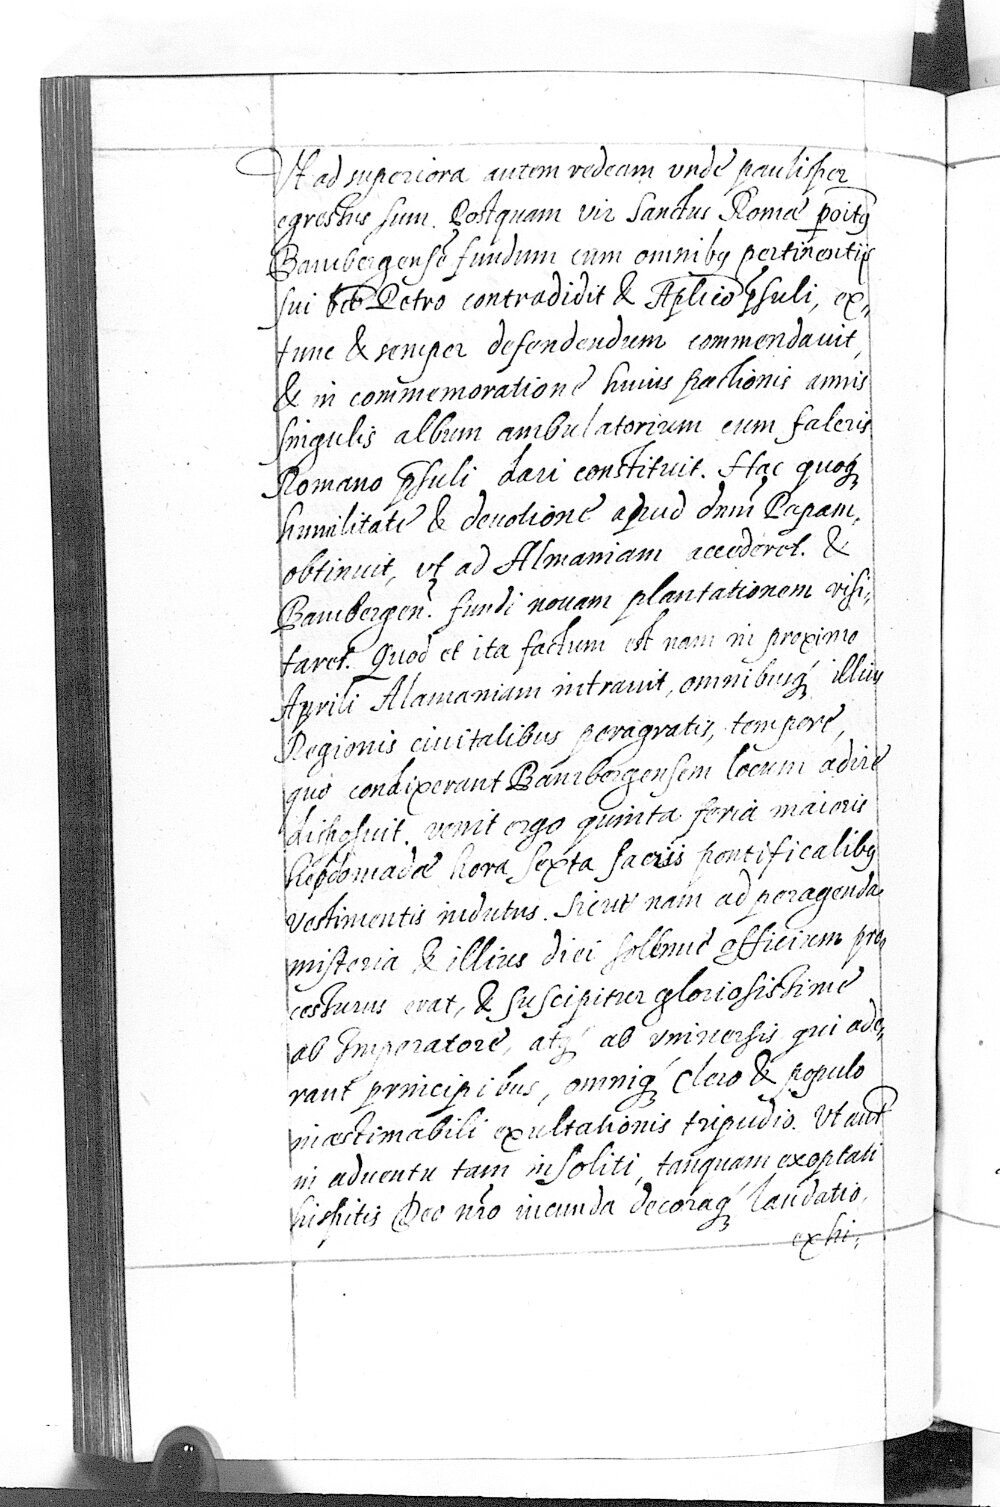 Ut ad superiora autem redeam vndè paulisper
egressus sum. Postquam vir Sanctus Romæ poitꝰ
Bambergensē fundum cum omnibꝰ pertinentijs
sui bto Petro contradidit & Aplico psuli, ex„
tunc & semper defendendum commendauit,
& in commemorationē huius pactionis annis
singulis album ambulatorium cum faleris
Romano psuli dari constituit. Hac quoqꝫ
humilitatē & deuotionē apud dnm̄ Papam,
obtinuit, vt ad Almaniam accederet. &
Bambergen̄. fundi nouam plantationem visi,,
taret. Quod et ita factum est nam in proximo
Aprili Alamaniam intrauit, omnibusqꝫ illius
Regionis ciuitatibus peragratis, temporè,
quò condixerant Bambergensem locum adirè
disposuit. venit ergo quinta feria maioris
hebdomadæ hora sexta sacris pontificalibꝰ
vestimentis indutus. sicut nam ad peragenda
misteria & illius diei solemnè officium pro„
cesturus erat, & suscipitur gloriosissimè
ab Imperatorè, atqꝫ ab vniuersis qui ade„
rant principibus, omniqꝫ clero & populo
inæstimabili exultationis tripudio. Vt aut̄
in aduentu tam insoliti, tanquam exoptati
hispitis Deo nr̄o iucunda decoraqꝫ laudatio,
exhi,,